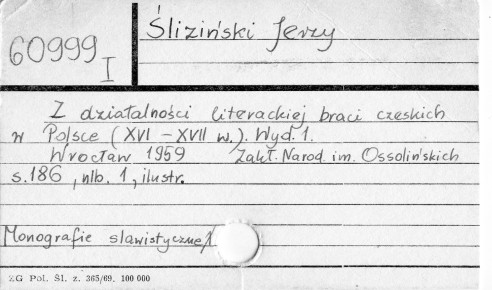 Śliziński Jerzy
60999
I
Z działalności literackiej braci czeskich
w Polsce (XVI - XVII w.). Wyd. 1.
Wrocław 1959 Zakł. Narod. im. Ossolińskich
s. 186, nlb. 1, ilustr.
Monografie slawistyczne 1
ZG Pol. Śl. z. 365/69. 100 000